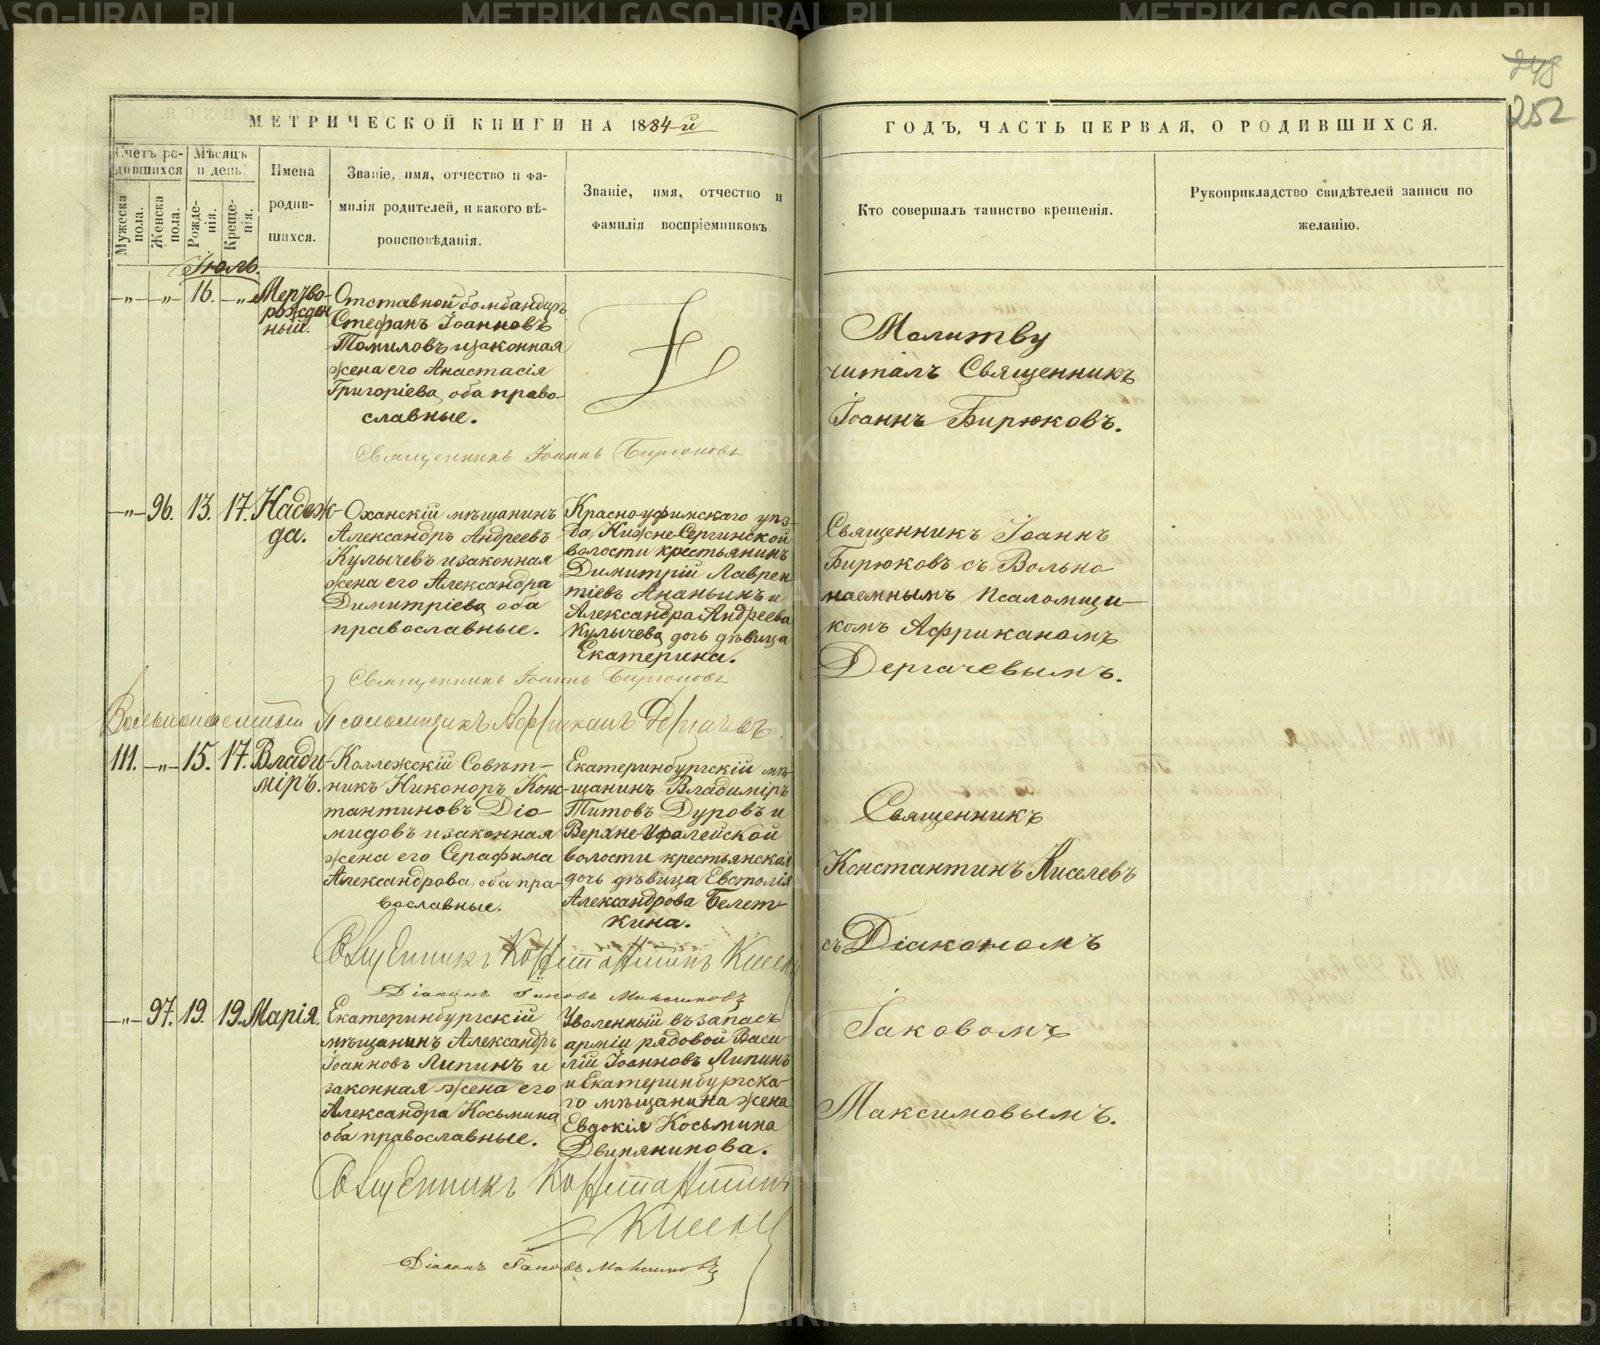 METRIKI.GASO-URAL.RU
248
252
МЕТРИЧЕСКОЙ КНИГИ НА 1884-й
ГОДЪ, ЧАСТЬ ПЕРВАЯ, О РОДИВШИХСЯ.
Счетъ ро-
дившихся
Мужеска пола.
Женска пола.
Мѣсяцъ
и день
Рожде-
нія.
Креще-
нія.
Имена
родив-
шихся.
Званіе, имя, отчество и фа-
милія родителей, и какого вѣ-
роисповѣданія.
Званіе, имя, отчество и
фамилія воспріемниковъ.
Кто совершалъ таинство крещенія.
Рукоприкладство свидѣтелей записи по
желанію.
Іюль.
-„- -„- 16. -„-
Мертво-
рожден
ный.
Отставной бомбандиръ
Стефанъ Іоанновъ
Томиловъ и законная
жена его Анастасія
Григоріева, оба право-
славные.
Молитву
читалъ Священникъ
Іоаннъ Бирюковъ.
Священникъ Іоаннъ Бирюковъ
-„- 96. 13. 17.
Надеж-
да.
Оханскій мѣщанинъ
Александръ Андреевъ
Кулычевъ и законная
жена его Александра
Димитріева, оба
православные.
Красноуфимскаго уѣз-
да, Нижне-Сергинской
волости крестьянинъ
Димитрій Лаврен
тіевъ Ананьинъ и
Александра Андреева
Кулычева дочь дѣвица
Екатерина.
Священникъ Іоаннъ
Бирюковъ съ Вольно
наемнымъ псаломщи-
комъ Африканомъ
Дергачевымъ.
Священникъ Іоаннъ Бирюковъ
Вольнонаемный Псаломщикъ Африканъ Дергачевъ.
111. -„- 15. 17.
Влади-
міръ.
Коллежскій Совѣт-
никъ Никоноръ Конс-
тантиновъ Діо-
мидовъ и законная
жена его Серафима
Александрова, оба пра-
вославные.
Екатеринбургскій мѣ-
щанинъ Владиміръ
Титовъ Дуровъ и
Верхне-Уфалейской
волости крестьянская
дочь дѣвица Евстолія
Александрова Белет-
кина.
Священникъ
Константинъ Киселевъ
съ Діакономъ
Іаковомъ
Максимовымъ.
Священникъ Константинъ Киселевъ
Діаконъ Іаковъ Максимовъ
-„- 97. 19. 19.
Марія.
Екатеринбургскій
мѣщанинъ Александръ
Іоанновъ Липинъ и
законная жена его
Александра Косьмина
оба православные.
Уволенный въ запасъ
арміи рядовой Васи-
лій Іоанновъ Липинъ
и Екатеринбургска-
го мѣщанина жена
Евдокія Косьмина
Двинянинова.
Священникъ Константинъ
Киселевъ
Діаконъ Іаковъ Максимовъ